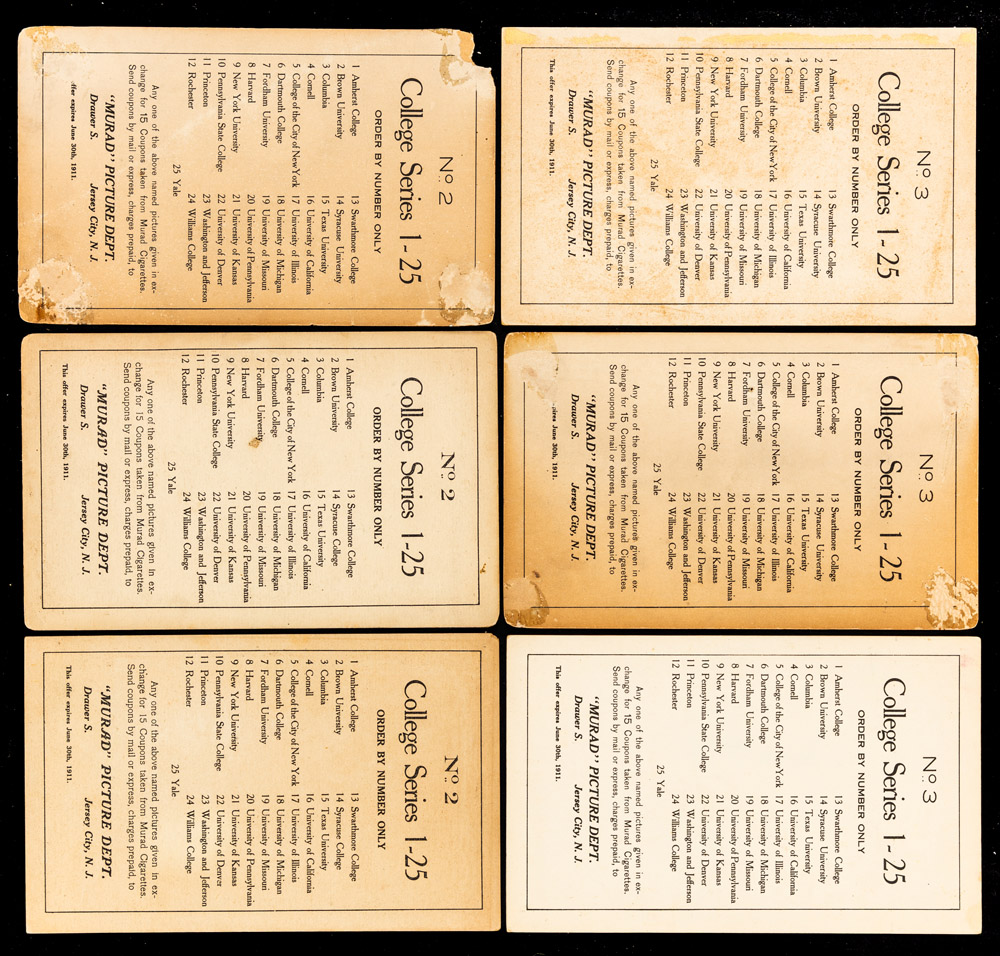 No. 2
College Series 1-25
ORDER BY NUMBER ONLY
1 Amherst College 13 Swarthmore College
2 Brown University 14 Syracuse University
3 Columbia 15 Texas University
4 Cornell 16 University of California
5 College of the City of New York 17 University of Illinois
6 Dartmouth College 18 University of Michigan
7 Fordham University 19 University of Missouri
8 Harvard 20 University of Pennsylvania
9 New York University 21 University of Kansas
10 Pennsylvania State College 22 University of Denver
11 Princeton 23 Washington and Jefferson
12 Rochester 24 Williams College
25 Yale
Any one of the above named pictures given in ex-
change for 15 Coupons taken from Murad Cigarettes.
Send coupons by mail or express, charges prepaid, to
"MURAD" PICTURE DEPT.
Drawer S. Jersey City, N. J.
expires June 30th, 1911.
No. 3
College Series 1-25
ORDER BY NUMBER ONLY
1 Amherst College 13 Swarthmore College
2 Brown University 14 Syracuse University
3 Columbia 15 Texas University
4 Cornell 16 University of California
5 College of the City of New York 17 University of Illinois
6 Dartmouth College 18 University of Michigan
7 Fordham University 19 University of Missouri
8 Harvard 20 University of Pennsylvania
9 New York University 21 University of Kansas
10 Pennsylvania State College 22 University of Denver
11 Princeton 23 Washington and Jefferson
12 Rochester 24 Williams College
25 Yale
Any one of the above named pictures given in ex-
change for 15 Coupons taken from Murad Cigarettes.
Send coupons by mail or express, charges prepaid, to
"MURAD" PICTURE DEPT.
Drawer S. Jersey City, N. J.
This offer expires June 30th, 1911.
No. 2
College Series 1-25
ORDER BY NUMBER ONLY
1 Amherst College 13 Swarthmore College
2 Brown University 14 Syracuse College
3 Columbia 15 Texas University
4 Cornell 16 University of California
5 College of the City of New York 17 University of Illinois
6 Dartmouth College 18 University of Michigan
7 Fordham University 19 University of Missouri
8 Harvard 20 University of Pennsylvania
9 New York University 21 University of Kansas
10 Pennsylvania State College 22 University of Denver
11 Princeton 23 Washington and Jefferson
12 Rochester 24 Williams College
25 Yale
Any one of the above named pictures given in ex-
change for 15 Coupons taken from Murad Cigarettes.
Send coupons by mail or express, charges prepaid, to
"MURAD' PICTURE DEPT.
Drawer S. Jersey City, N. J.
This offer expires June 30th, 1911.
No. 3
College Series 1-25
ORDER BY NUMBER ONLY
1 Amherst College 13 Swarthmore College
2 Brown University 14 Syracuse College
3 Columbia 15 Texas University
4 Cornell 16 University of California
5 College of the City of New York 17 University of Illinois
6 Dartmouth College 18 University of Michigan
7 Fordham University 19 University of Missouri
8 Harvard 20 University of Pennsylvania
9 New York University 21 University of Kansas
10 Pennsylvania State College 22 University of Denver
11 Princeton 23 Washington and Jefferson
12 Rochester 24 Williams College
25 Yale
Any one of the above named pictures given in ex-
change for 15 Coupons taken from Murad Cigarettes.
Send coupons by mail or express, charges prepaid, to
"MURAD" PICTURE DEPT.
Drawer S. Jersey City, N. J.
June 30th, 1911.
No. 2
College Series 1-25
ORDER BY NUMBER ONLY
1 Amherst College 13 Swarthmore College
2 Brown University 14 Syracuse College
3 Columbia 15 Texas University
4 Cornell 16 University of California
5 College of the City of New York 17 University of Illinois
6 Dartmouth College 18 University of Michigan
7 Fordham University 19 University of Missouri
8 Harvard 20 University of Pennsylvania
9 New York University 21 University of Kansas
10 Pennsylvania State College 22 University of Denver
11 Princeton 23 Washington and Jefferson
12 Rochester 24 Williams College
25 Yale
Any one of the above named pictures given in ex-
change for 15 Coupons taken from Murad Cigarettes.
Send coupons by mail or express, charges prepaid, to
"MURAD" PICTURE DEPT.
Drawer S. Jersey City, N. J.
This offer expires June 30th, 1911.
No. 3
College Series 1-25
ORDER BY NUMBER ONLY
1 Amherst College 13 Swarthmore College
2 Brown University 14 Syracuse University
3 Columbia 15 Texas University
4 Cornell 16 University of California
5 College of the City of New York 17 University of Illinois
6 Dartmouth College 18 University of Michigan
7 Fordham University 19 University of Missouri
8 Harvard 20 University of Pennsylvania
9 New York University 21 University of Kansas
10 Pennsylvania State College 22 University of Denver
11 Princeton 23 Washington and Jefferson
12 Rochester 24 Williams College
25 Yale
Any one of the above named pictures given in ex-
change for 15 Coupons taken from Murad Cigarettes.
Send coupons by mail or express, charges prepaid, to
"MURAD" PICTURE DEPT.
Drawer S. Jersey City, N. J.
This offer expires June 30th, 1911.